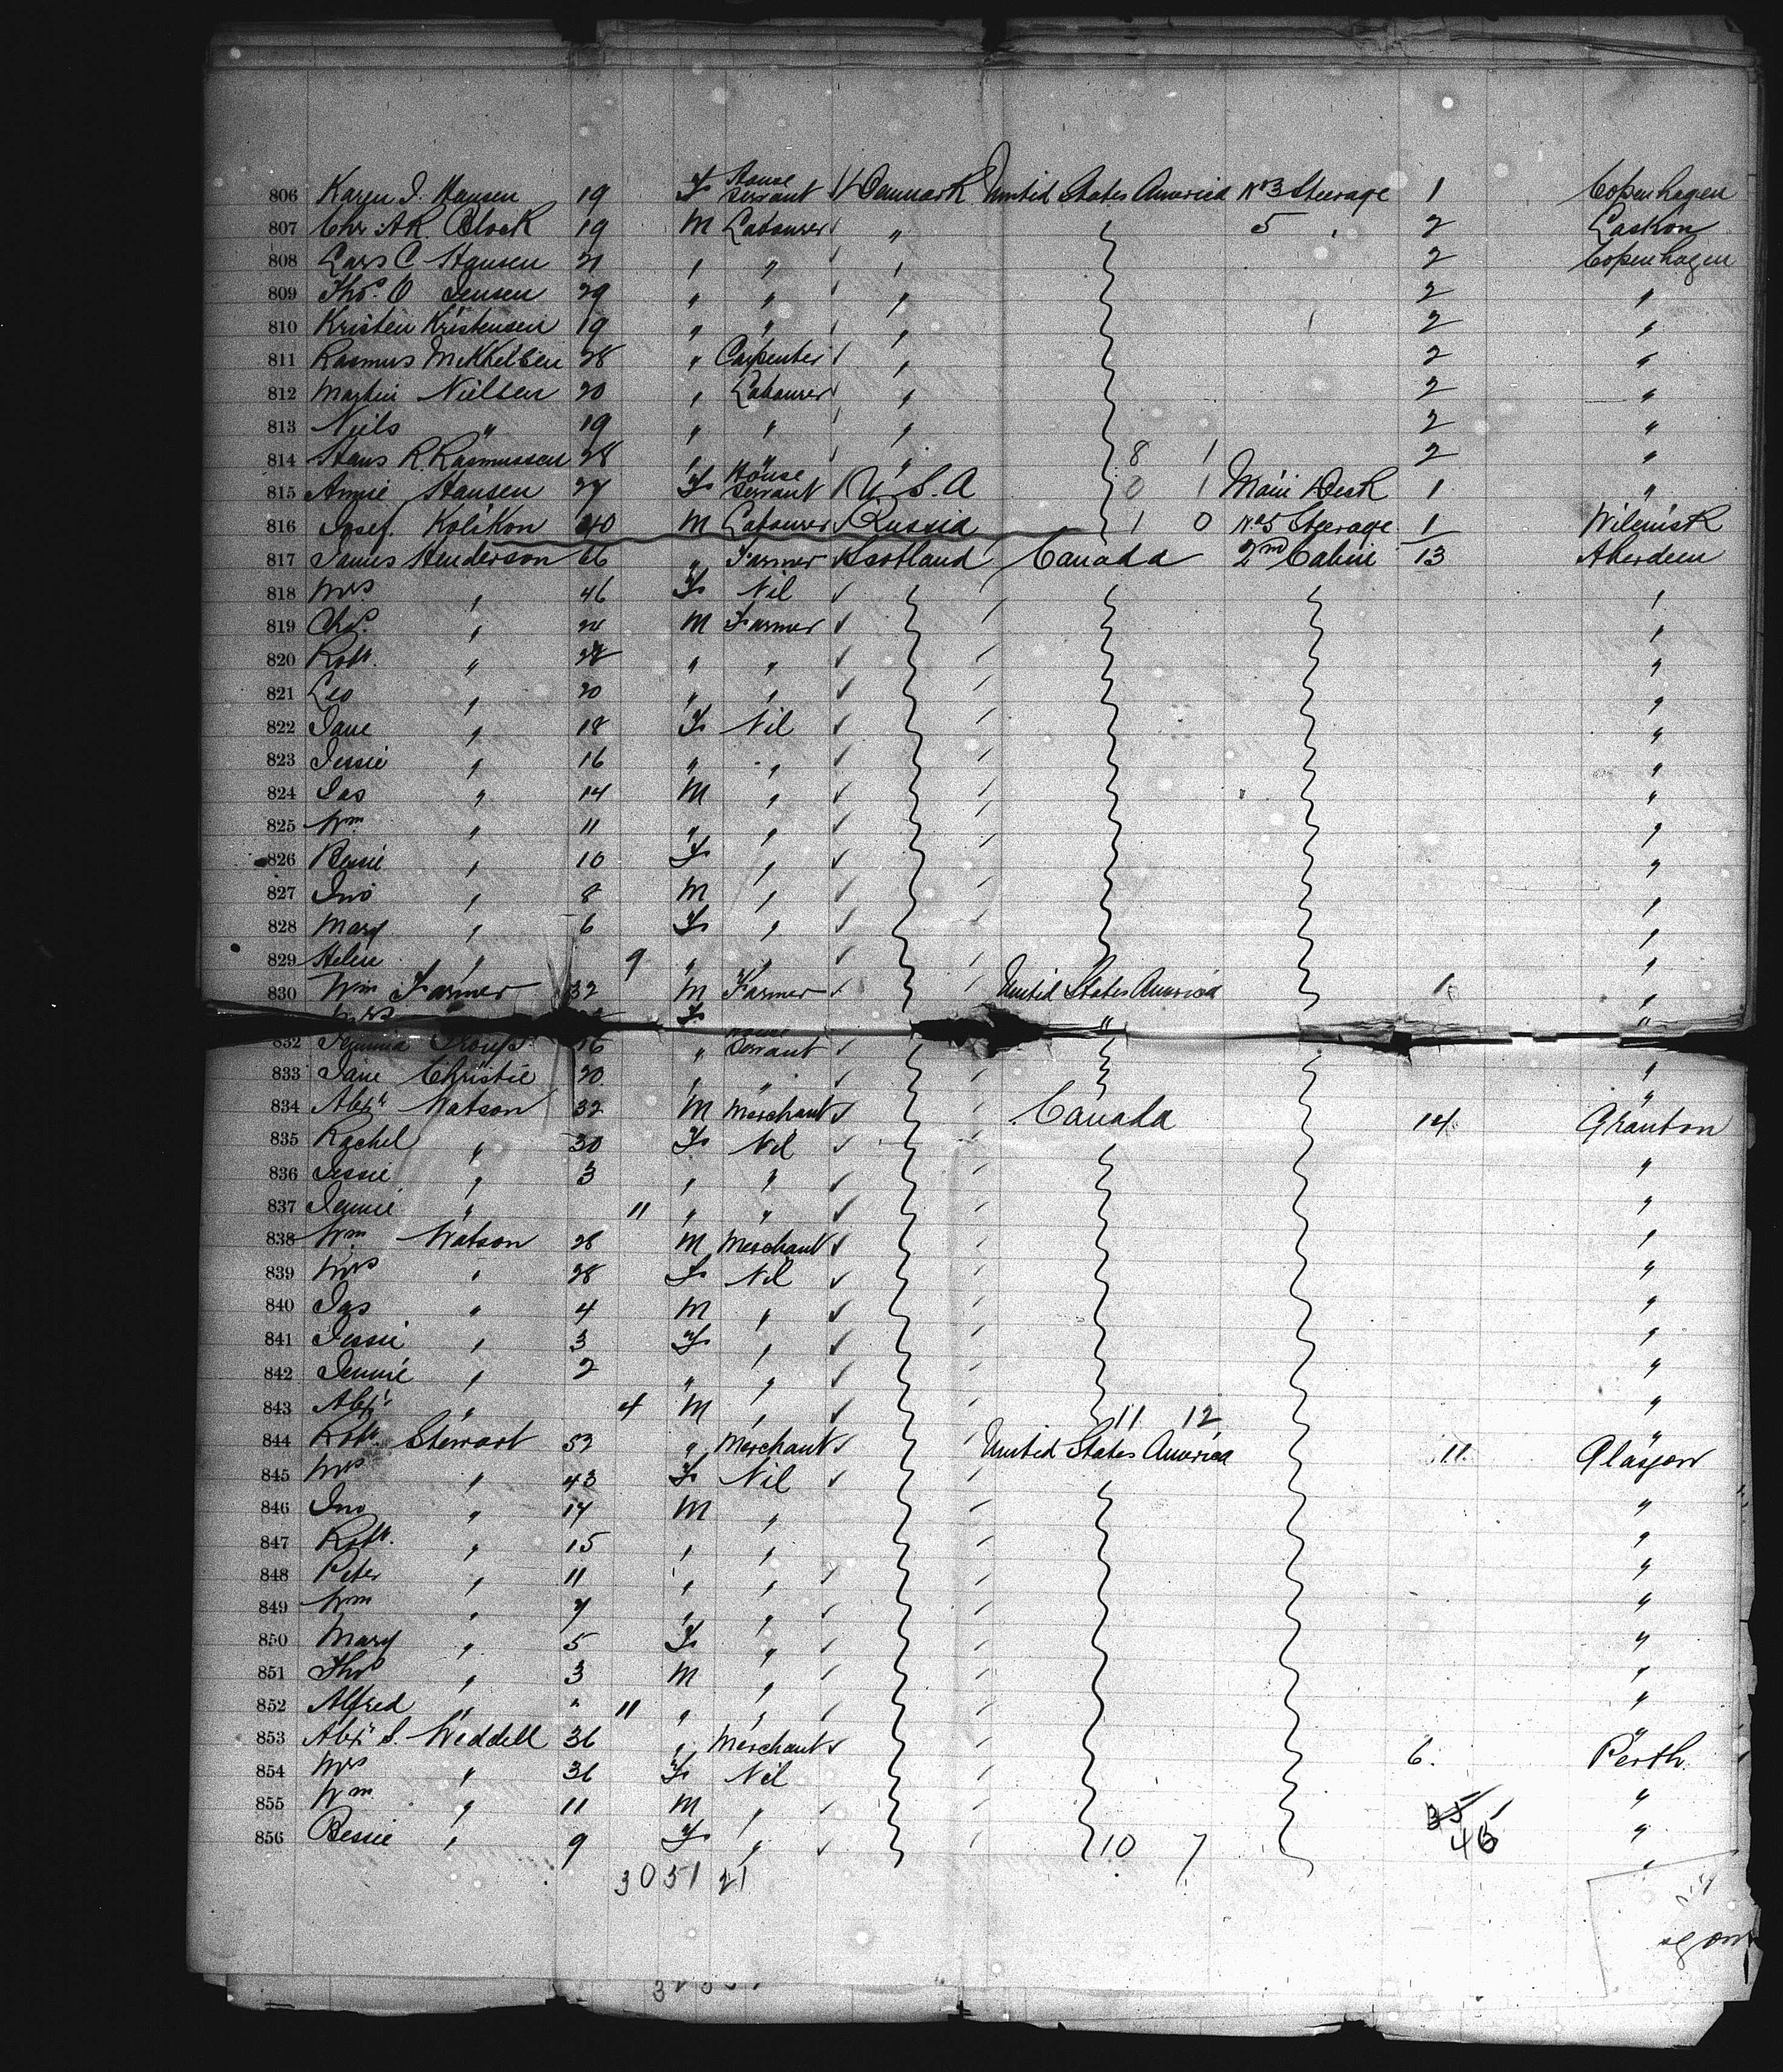 806 Karen J. Hansen 19 F House Servant Denmark United States America No 3 Steerage 1 Copenhagen
807 Chr. A.R. Block 19 M Labourer " 5 " 2
808 Lars C Hansen 21 " " " 2 Copenhagen
809 Thos. O Jensen 29 " " " 2 "
810 Kristen Kristensen 19 " " " 2 "
811 Rasmus Mikkelsen 28 " Carpenter " 2 "
812 Martin Nielsen 20 " Labourer " 2 "
813 Niels " 19 " " " 2 "
814 Hans R. Rasmussen 28 " " " 8 1 2 "
815 Annie Hansen 27 F House Servant U.S.A 0 1 Main Deck 1 "
816 Josef Kolikon 40 M Labourer Russia 1 0 No 5 Steerage 1
817 James Henderson 66 " Farmer Scotland Canada 2nd Cabin 13 Aberdeen
818 Mrs " 46 F Nil "
819 Chas. " M Farmer "
820 Robt. " " " "
821 Leo " 20 " " "
822 Jane " 18 F Nil "
823 Jessie " 16 " " "
824 Jas " 14 M " "
825 Wm " 11 " " "
826 Bessie " 10 F " "
827 Jno " 8 M " "
828 Mary " 6 F " "
829 Helen " 9 " " "
830 Wm Farmer 32 M Farmer United States America 1 "
Mrs F " "
832 Jemima 16 " House Servant "
833 Jane Christie 20 " " "
834 Alexr Watson 32 M Merchant Canada 14 Granton
835 Rachel " 30 F Nil "
836 Jessie " 3 " " "
837 Jennie " 11 " " "
838 Wm Watson 28 M Merchant "
839 Mrs " 28 F Nil "
840 Jas " 4 M " "
841 Jessie " 3 F " "
842 Jennie " 2 " " "
843 Alexr " 4 M " 11 12 "
844 Robt. Stewart 52 " Merchant United States America 11 Glasgow
845 Mrs " 43 F Nil "
846 Jno " 17 M " "
847 Robt. " 15 " " "
848 Peter " 11 " " "
849 Wm " 7 " " "
850 Mary " 5 F " "
851 Thos " 3 M " "
852 Alfred " " 11 " " "
853 Alexr S. Weddell 36 " Merchant 6 Perth
854 Mrs " 36 F Nil "
855 Wm " 11 M " "
856 Bessie " 9 F " 10 7 "
35
46
3051 21